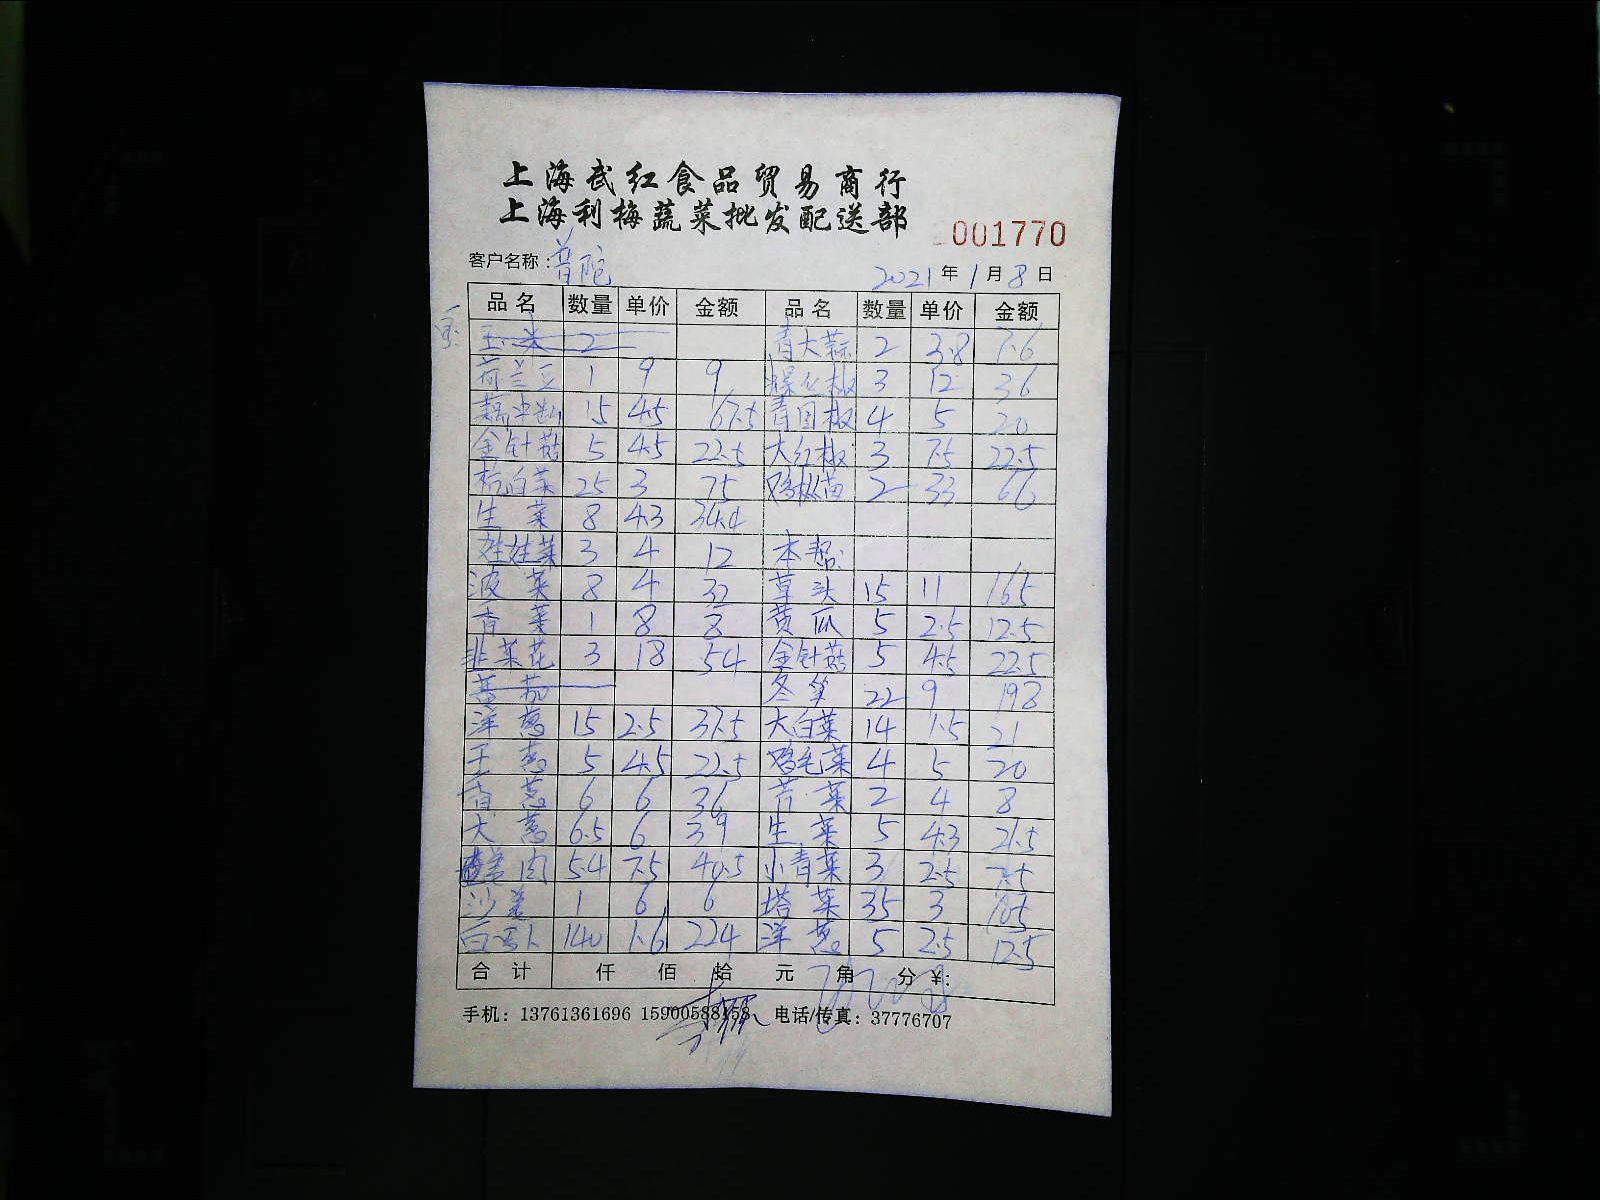 上海武红食品贸易商行
上海利梅蔬菜批发配送部
001770
客户名称：普陀 2021年1月8日
品名 数量 单价 金额 品名 数量 单价 金额
玉米 2 青大蒜 2 3.8 7.6
荷兰豆 1 9 9 椒 3 12 36
藕 15 4.5 67.5 青圆椒 4 5 20
金针菇 5 4.5 22.5 大红椒 3 7.5 22.5
杭白菜 25 3 75 鸡枞菌 2 33 66
生菜 8 4.3 34.4
娃娃菜 3 4 12 本帮:
菠菜 8 4 32 草头 15 11 165
香菜 1 8 8 黄瓜 5 2.5 12.5
韭菜花 3 18 54 金针菇 5 4.5 22.5
番茄 冬笋 22 9 198
洋葱 15 2.5 37.5 大白菜 14 1.5 21
京葱 5 4.5 22.5 鸡毛菜 4 5 20
香葱 6 6 36 芹菜 2 4 8
大葱 6.5 6 39 生菜 5 4.3 21.5
姜肉 5.4 7.5 40.5 小青菜 3 2.5 7.5
沙姜 1 6 6 塔菜 35 3 105
白萝卜 140 1.6 224 洋葱 5 2.5 12.5
合计 仟 佰 拾 元 角 分 ¥:
手机：13761361696 15900588158 电话/传真：37776707